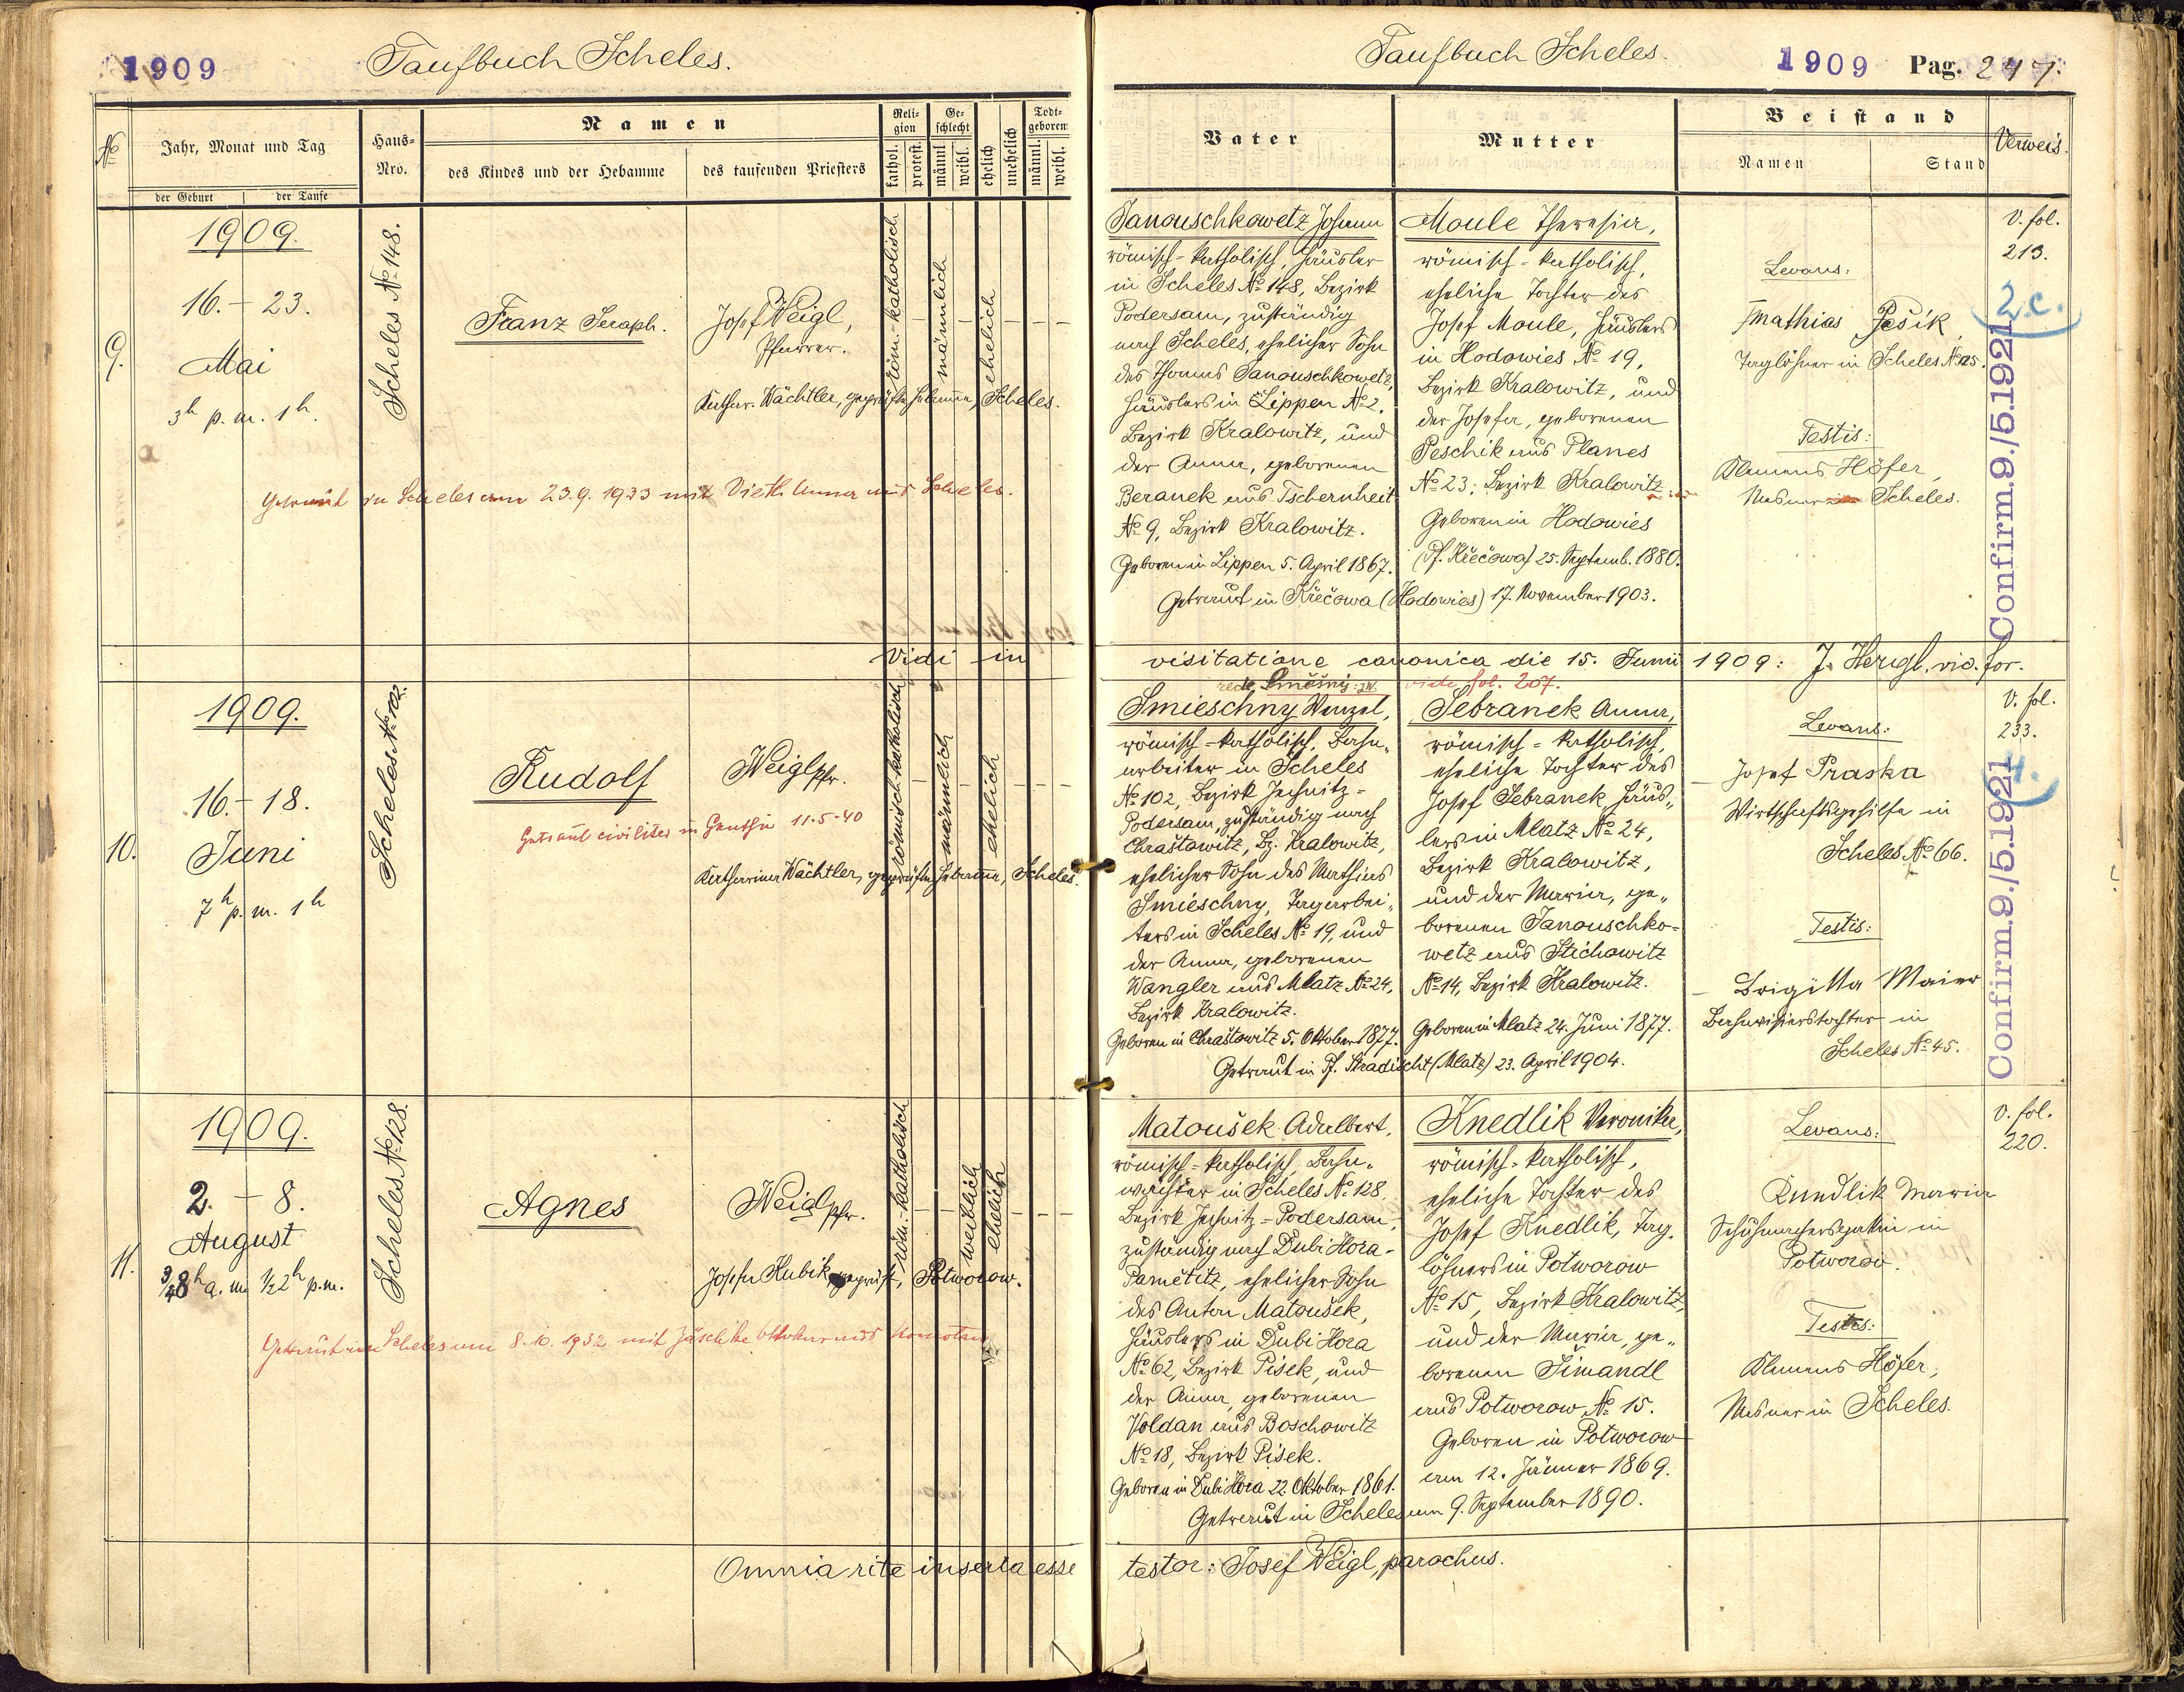 1909
Taufbuch Scheles.
№
Jahr, Monat und Tag
der Geburt
der Taufe
Haus-
Nro.
Namen
des Kindes und der Hebamme
des taufenden Priesters
Reli-
gion
kathol.
protest.
Ge-
schlecht
männl.
weibl.
ehelich
unehelich
Todt-
geboren
männl.
weibl.
9.
1909.
16. – 23.
Mai
3h p. m. 1h.
Scheles № 148.
Franz Seraph.
Josef Weigl,
Pfarrer.
röm.-katholisch
männlich
ehelich
Kathar. Wächtler, geprüfte Hebamme, Scheles.
Getraut zu Scheles am 23.9.1933 mit Vieth Anna aus Scheles.
Vidi in
10.
1909.
16. – 18.
Juni
7h p. m. 1h
Scheles № 102.
Rudolf
Weigl Pfr.
römisch-katholisch
männlich
ehelich
Getraut civiliter in Genthin 11-5-40
Katharina Wächtler, geprüfte Hebamme, Scheles.
11.
1909.
2. – 8.
August
¾8h a. m. ½2h p. m.
Scheles № 128.
Agnes
Weigl Pfr.
röm.-katholisch
weiblich
ehelich
Josefa Kubik, geprüft, Potworow.
Getraut in Scheles am 8.10.1932 mit Jäschke Ottokar aus Komotau
Omnia rite inserta esse
Taufbuch Scheles.
1909 Pag. 247.
Vater
Mutter
Beistand
Namen
Stand
Verweis.
Janouschkowetz Johann
römisch-katholisch, Häusler
in Scheles № 148, Bezirk
Podersam, zuständig
nach Scheles, ehelicher Sohn
des Thomas Janouschkowetz,
Häuslers in Lippen № 2.
Bezirk Kralowitz, und
der Anna, geborenen
Beranek aus Tschernheit
№ 9, Bezirk Kralowitz.
Geboren in Lippen 5. April 1867.
Moule Theresia,
römisch-katholisch,
eheliche Tochter des
Josef Moule, Häuslers
in Hodowies № 19,
Bezirk Kralowitz, und
der Josefa, geborenen
Peschik aus Planes
№ 23; Bezirk Kralowitz.
Geboren in Hodowies
(Pf. Křečowa) 25. Septemb. 1880.
Getraut in Křečowa (Hodowies) 17. November 1903.
Levans:
Mathias Pešik
Taglöhner in Scheles № 25.
Testis:
Klemens Höfer,
Mesner Scheles.
V. fol.
213.
2.c.
Confirm. 9./5. 1921
visitatione canonica die 15. Junii 1909: J. Hergl, vic. for.
recte Směšný: JW. vide fol. 207.
Smieschny Wenzel,
römisch-katholisch, Bahn-
arbeiter in Scheles
№ 102, Bezirk Jechnitz-
Podersam, zuständig nach
Chraštowitz, Bz. Kralowitz,
ehelicher Sohn des Mathias
Smieschny, Tagarbei-
ters in Scheles № 19, und
der Anna, geborenen
Wangler aus Mlatz № 24,
Bezirk Kralowitz.
Geboren in Chraštowitz 5. Oktober 1877.
Sebranek Anna,
römisch-katholisch,
eheliche Tochter des
Josef Sebranek, Häus-
lers in Mlatz № 24,
Bezirk Kralowitz,
und der Maria, ge-
borenen Janouschko-
wetz aus Stichowitz
№ 14, Bezirk Kralowitz.
Geboren in Mlatz 24. Juni 1877.
Getraut in Pf. Hradischt (Mlatz) 23. April 1904.
Levans:
Josef Praska
Wirtschaftsgehilfe in
Scheles № 66.
Testis:
Brigitta Maier
Bahnvisierstochter in
Scheles № 45.
V. fol.
233.
4.
Confirm. 9./5. 1921
Matoušek Adalbert,
römisch-katholisch, Bahn-
wächter in Scheles № 128,
Bezirk Jechnitz-Podersam,
zuständig nach Dubi Hora-
Pamětitz, ehelicher Sohn
des Anton Matoušek,
Häuslers in Dubi Hora
№ 62, Bezirk Pisek, und
der Anna, geborenen
Voldan aus Boschowitz
№ 18, Bezirk Pisek.
Geboren in Dubi Hora 22. Oktober 1861.
Knedlik Veronika,
römisch-katholisch,
eheliche Tochter des
Josef Knedlik, Tag-
löhners in Potworow
№ 15, Bezirk Kralowitz,
und der Maria, ge-
borenen Šimandl
aus Potworow № 15.
Geboren in Potworow
am 12. Jänner 1869.
Getraut in Scheles am 9. September 1890.
Levans:
Knedlik Maria
Schuhmachersgattin in
Potworow.
Testes:
Klemens Höfer,
Mesner in Scheles.
V. fol.
220.
testor: Josef Weigl, parochus.